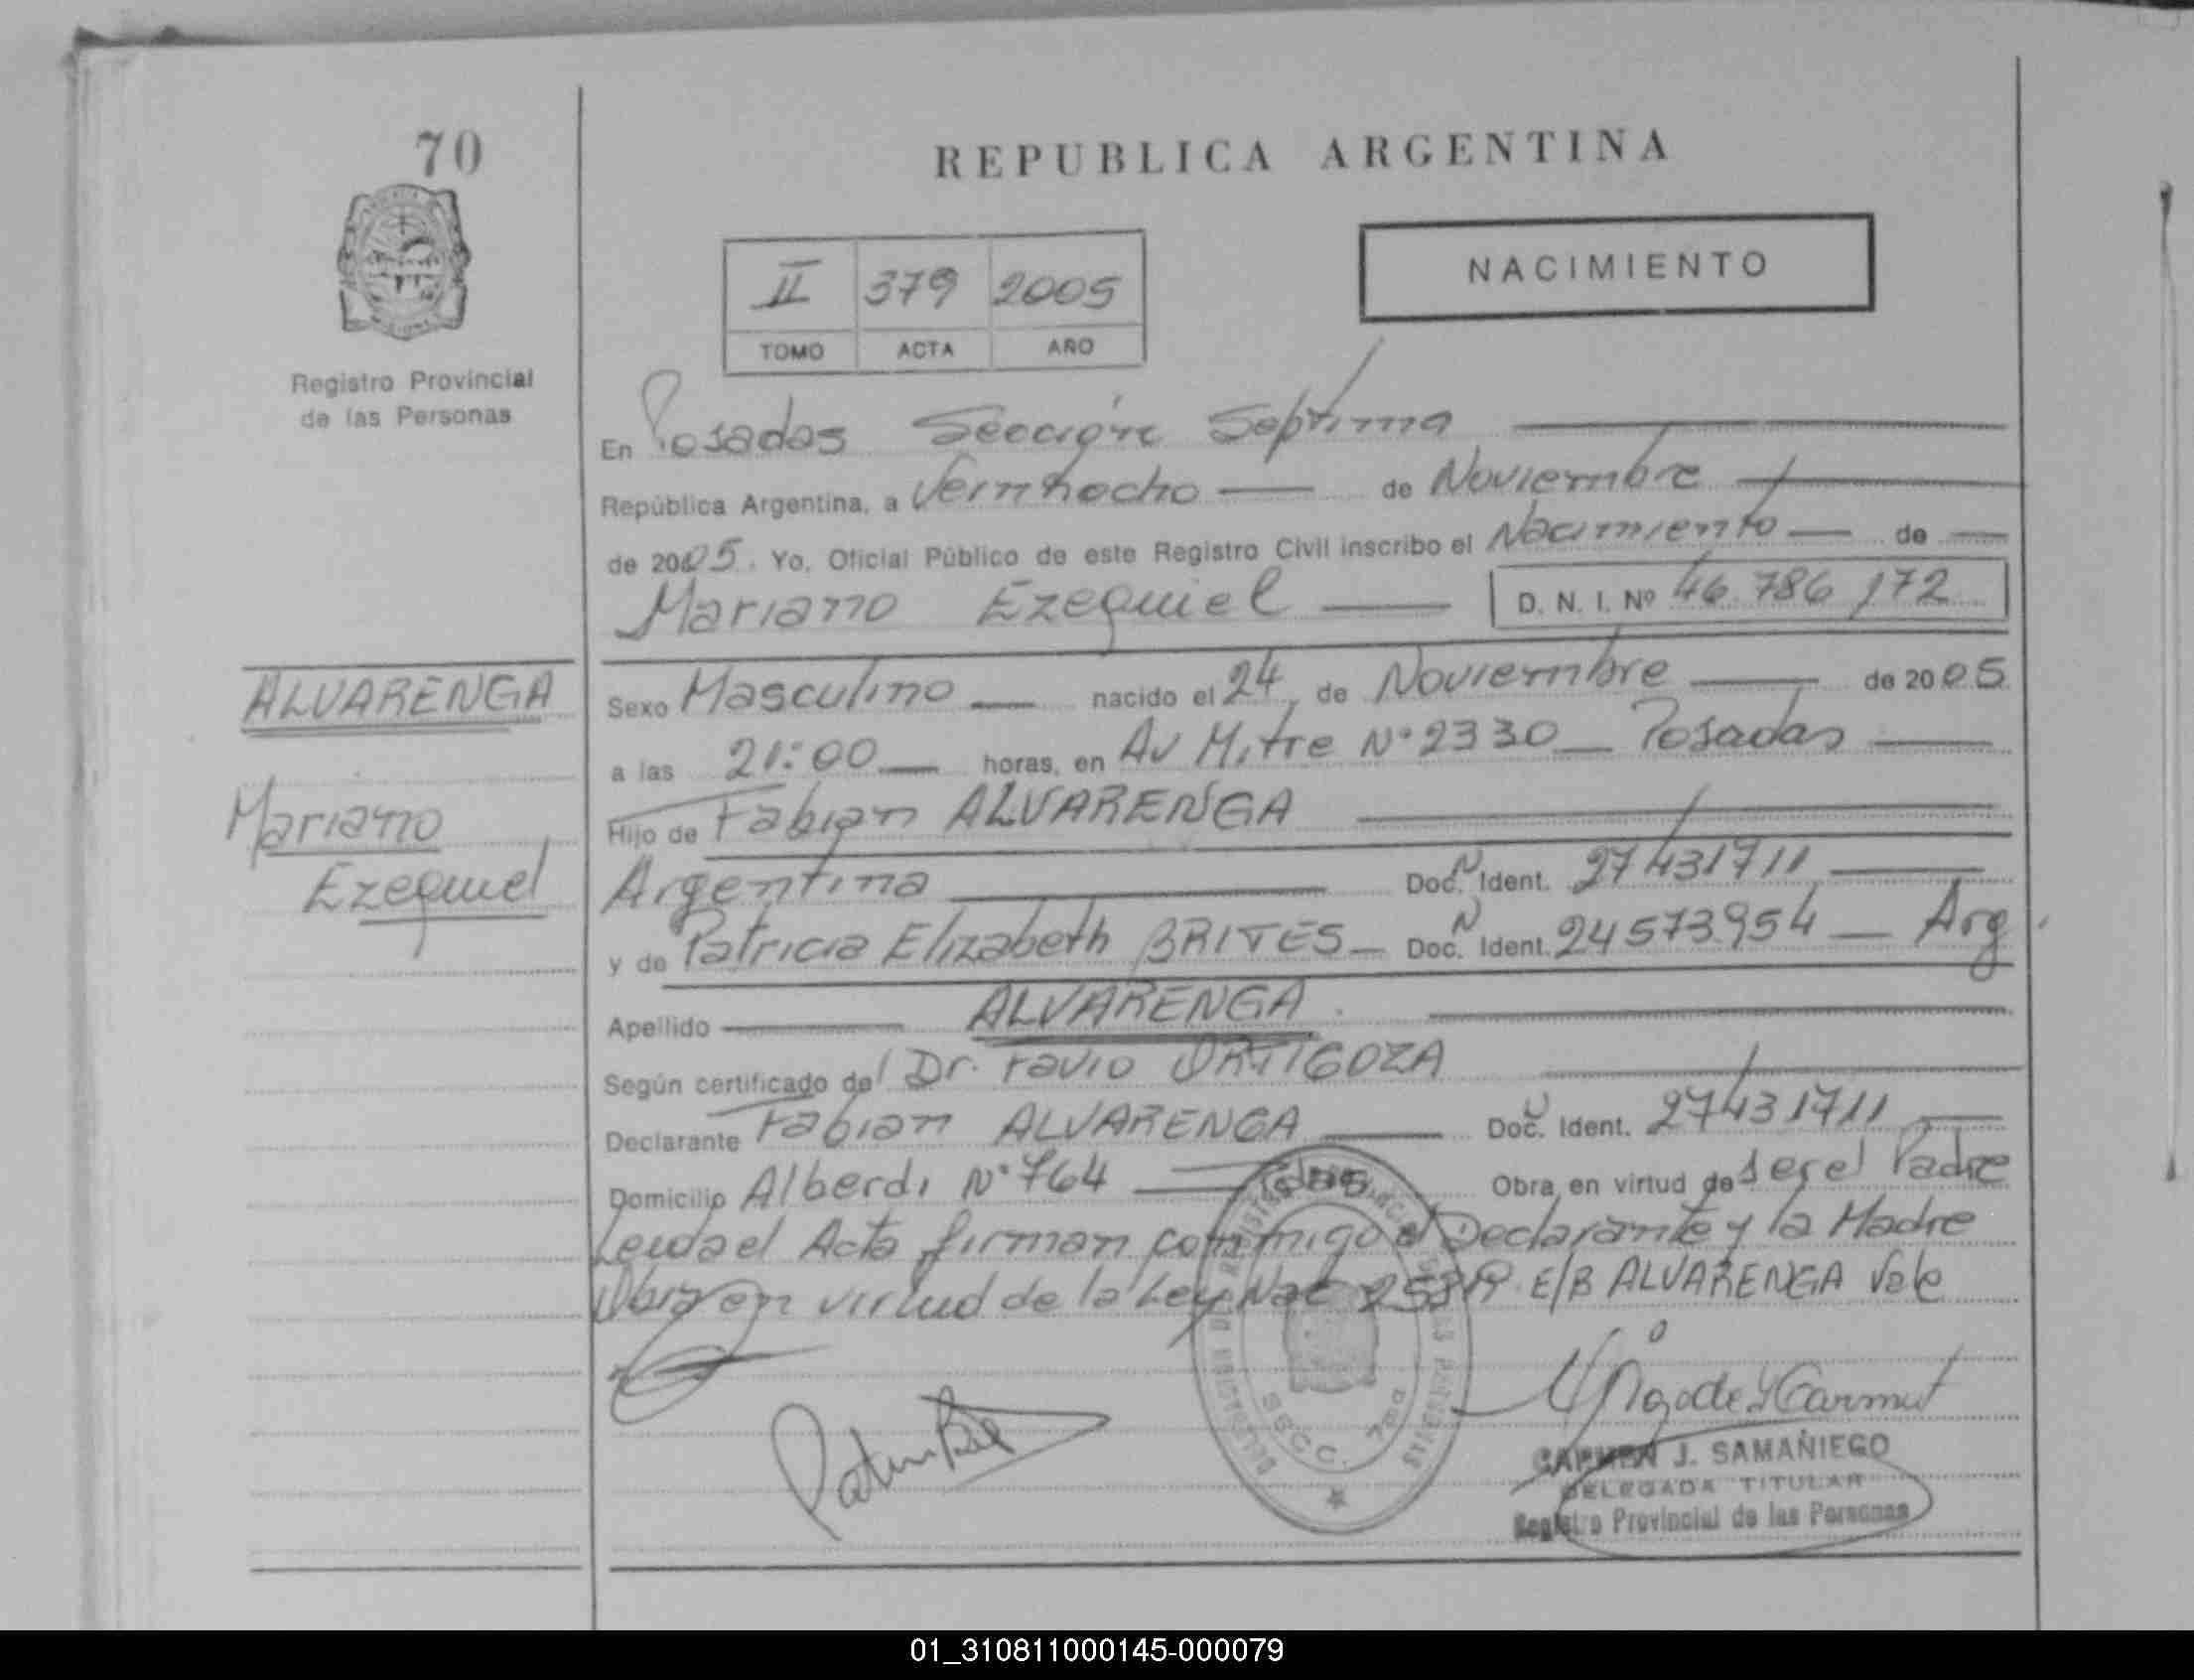 70
REPUBLICA ARGENTINA
II 379 2005
TOMO ACTA AÑO
NACIMIENTO
Registro Provincial
de las Personas
En Posadas Sección Septima
República Argentina, a Veintiocho de Noviembre
de 2005. Yo, Oficial Público de este Registro Civil inscribo el Nacimiento de
Mariano Ezequiel D. N. I. Nº 46.786 172
ALVARENGA
Mariano
Ezequiel
Sexo Masculino nacido el 24 de Noviembre de 2005
a las 21:00 horas, en Av Mitre Nº 2330 Posadas
Hijo de Fabian ALVARENGA
Argentina Doc. Ident. 27431711
y de Patricia Elizabeth BRITES Doc. Ident. 24573954 Arg.
Apellido ALVARENGA
Según certificado del Dr. Favio ORTIGOZA
Declarante Fabian ALVARENGA Doc. Ident. 27431711
Domicilio Alberdi Nº 764 Obra en virtud de ser el Padre
Leida el Acta firman conmigo el Declarante y la Madre
Obra en virtud de la Ley Nac E/B ALVARENGA Vale
SECC. 7ma
CARMEN J. SAMAÑIEGO
DELEGADA TITULAR
Registro Provincial de las Personas
01_310811000145-000079